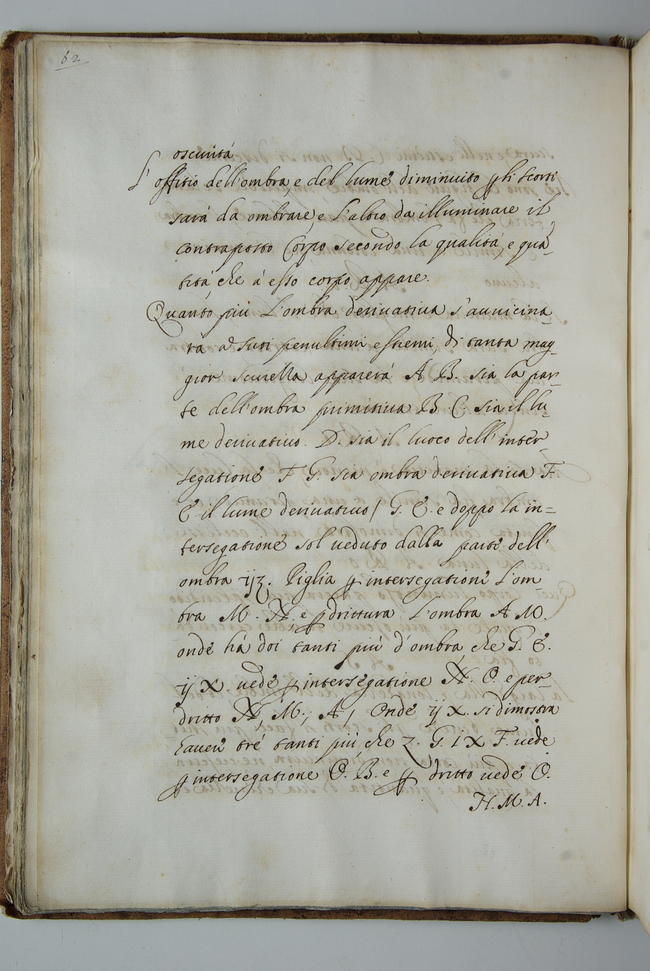 62
oscurità
L'offitio dell'ombra e del lume diminuito p li scorti
sarà da ombrare, e l'altro da illuminare il
contraposto Corpo secondo la qualità, e quã-
tità che à esso corpo appare.
Quanto più l'ombra derivativa s'avvicina-
rà a suoi penultimi estremi, di tanta mag-
gior scurella apparerà A B. sia la par-
te dell'ombra primitiva B C. sia il lu-
me derivativo. D. sia il luoco dell'inter-
segatione F G. sia ombra derivativa F.
E il lume derivativo/ G. E. e doppo la in=
tersegatione sol veduto dalla parte dell'
ombra yz. Piglia p intersegatione l'om
bra M. N. e p drittura l'ombra A M.
onde hà doi tanti più d'ombra che G. E.
y X. vede p intersegatione N. O. e per-
dritto N M., A/ Onde y X. si dimostra
haver trè tanti più che z. G. / X F. vede
p intersegatione O. B. e p dritto vede O.
H. M. A.